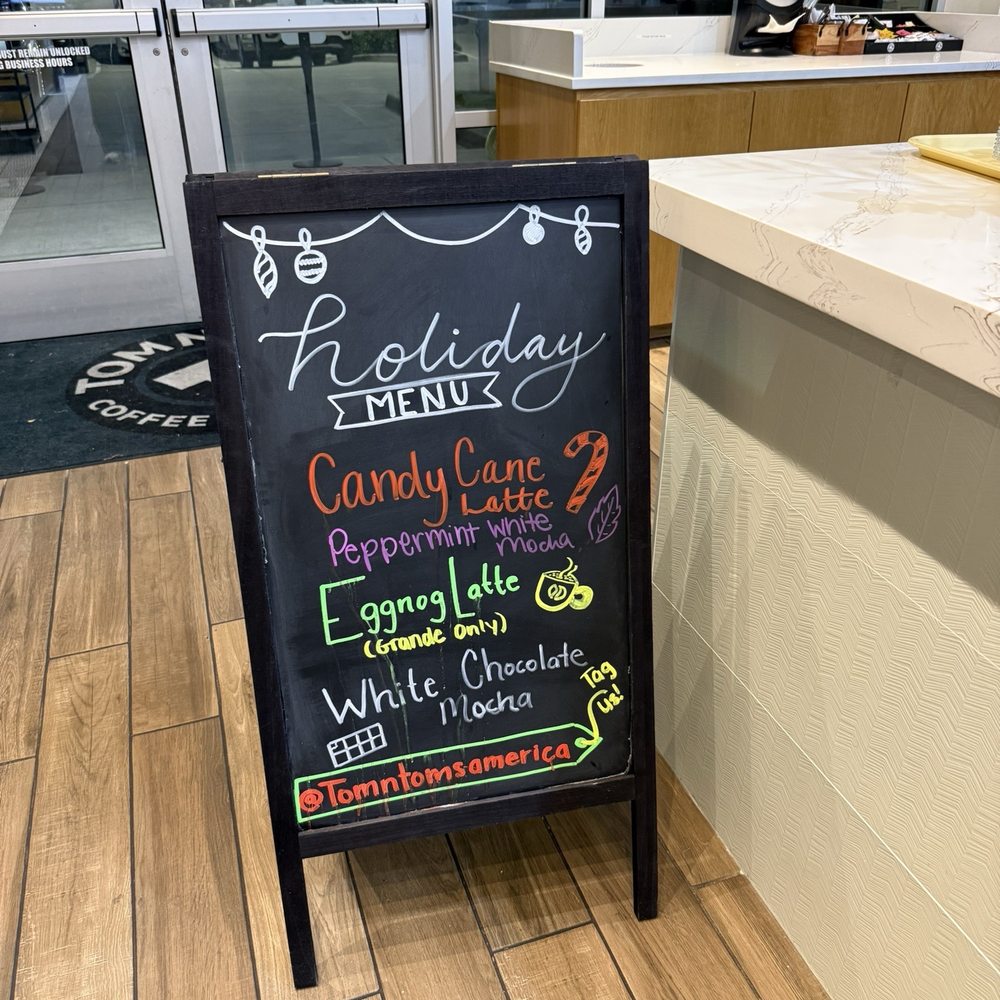 UST REMAIN UNLOCKED
G BUSINESS HOURS
TOM N
COFFEE
holiday
MENU
Candy Cane
Latte
Peppermint White
Mocha
Eggnog Latte
(Grande Only)
White Chocolate
Mocha
Tag
Us!
@Tomntomsamerica